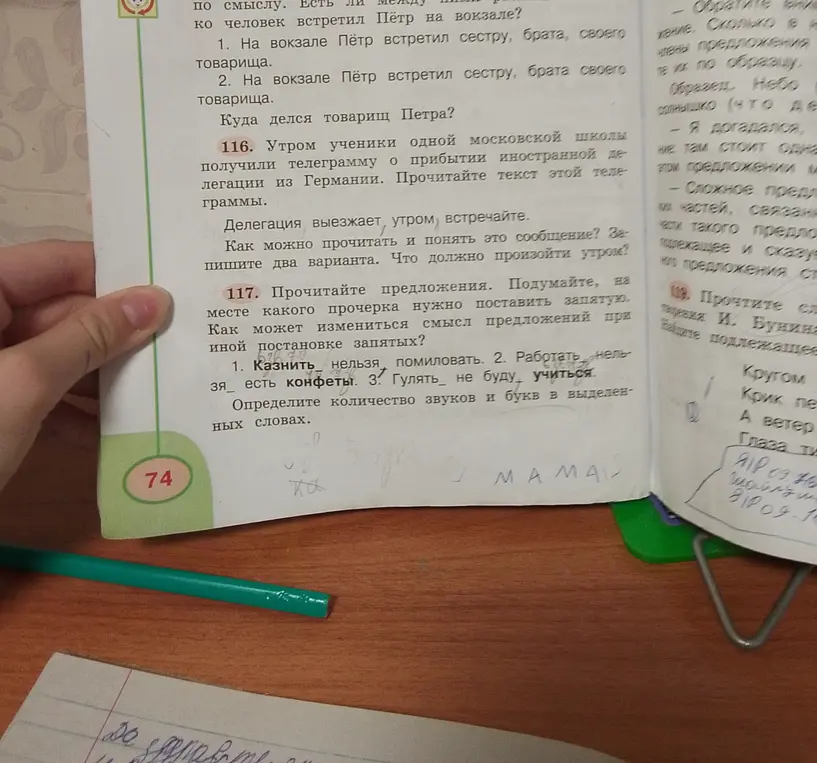 по смыслу. Есть ли между
ко человек встретил Пётр на вокзале?
1. На вокзале Пётр встретил сестру, брата, своего
товарища.
2. На вокзале Пётр встретил сестру, брата своего
товарища.
Куда делся товарищ Петра?
116. Утром ученики одной московской школы
получили телеграмму о прибытии иностранной де-
легации из Германии. Прочитайте текст этой теле-
граммы.
Делегация выезжает утром встречайте.
Как можно прочитать и понять это сообщение? За-
пишите два варианта. Что должно произойти утром?
117. Прочитайте предложения. Подумайте, на
месте какого прочерка нужно поставить запятую.
Как может измениться смысл предложений при
иной постановке запятых?
1. Казнить_ нельзя_ помиловать. 2. Работать_ нель-
зя_ есть конфеты. 3. Гулять_ не буду_ учиться.
Определите количество звуков и букв в выделен-
ных словах.
МАМА
74
— Обратите
жение. Сколько в
члены предложения
те их по образцу.
Образец. Небо
солнышко (что де
– Я догадался,
там стоит одна
этом предложении
– Сложное предл
частей, связан
части такого предло
подлежащее и сказуе
предложения ст
119. Прочтите
И. Бунина
Найдите подлежащее
Кругом
Крик пе
А ветер
Глаза ти